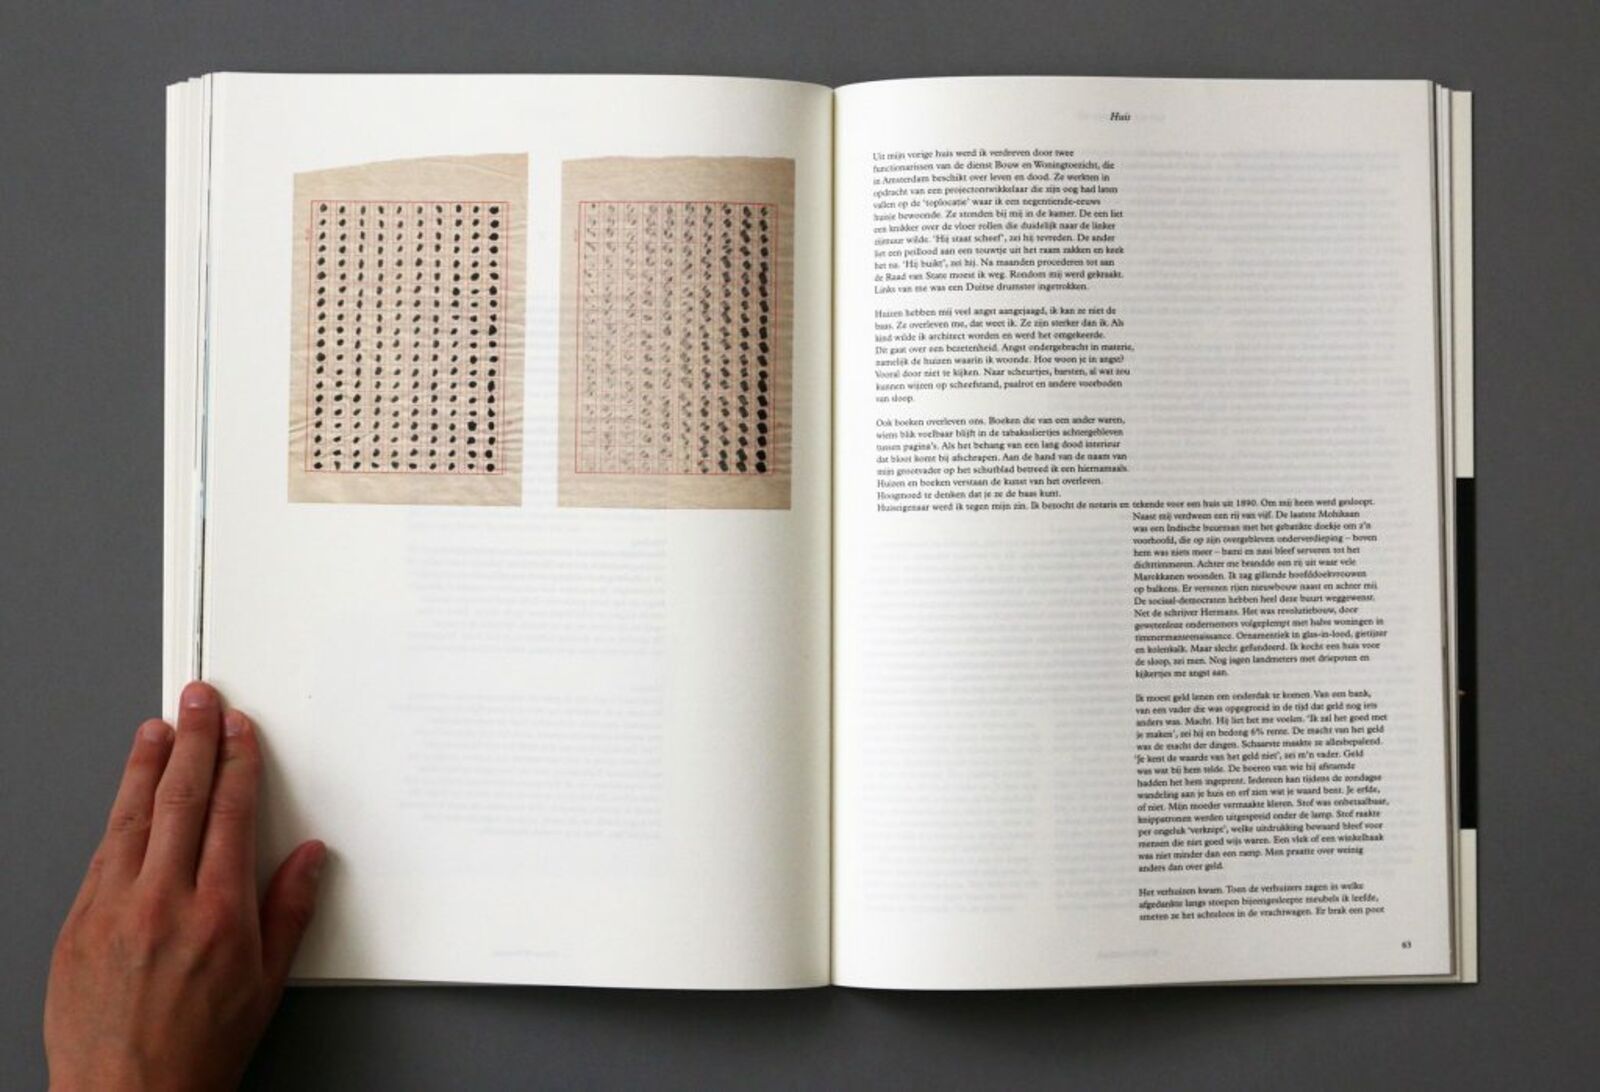 Huis
Uit mijn vorige huis werd ik verdreven door twee
functionarissen van de dienst Bouw en Woningtoezicht, die
in Amsterdam beschikt over leven en dood. Ze werkten in
opdracht van een projectontwikkelaar die zijn oog had laten
vallen op de 'toplocatie' waar ik een negentiende-eeuws
huisje bewoonde. Ze stonden bij mij in de kamer. De een liet
een knikker over de vloer rollen die duidelijk naar de linker
zijmuur wilde. 'Hij staat scheef', zei hij tevreden. De ander
liet een peillood aan een touwtje uit het raam zakken en keek
het na. 'Hij buikt', zei hij. Na maanden procederen tot aan
de Raad van State moest ik weg. Rondom mij werd gekraakt.
Links van me was een Duitse drumster ingetrokken.
Huizen hebben mij veel angst aangejaagd, ik kan ze niet de
baas. Ze overleven me, dat weet ik. Ze zijn sterker dan ik. Als
kind wilde ik architect worden en werd het omgekeerde.
Dit gaat over een bezetenheid. Angst ondergebracht in materie,
namelijk de huizen waarin ik woonde. Hoe woon je in angst?
Vooral door niet te kijken. Naar scheurtjes, barsten, al wat zou
kunnen wijzen op scheefstand, paalrot en andere voorboden
van sloop.
Ook boeken overleven ons. Boeken die van een ander waren,
wiens blik voelbaar blijft in de tabakssliertjes achtergebleven
tussen pagina's. Als het behang van een lang dood interieur
dat bloot komt bij afschrapen. Aan de hand van de naam van
mijn grootvader op het schutblad betreed ik een hiernamaals.
Huizen en boeken verstaan de kunst van het overleven.
Hoogmoed te denken dat je ze de baas kunt.
Huiseigenaar werd ik tegen mijn zin. Ik bezocht de notaris en tekende voor een huis uit 1890. Om mij heen werd gesloopt.
Naast mij verdween een rij van vijf. De laatste Mohikaan
was een Indische buurman met het gebatikte doekje om z'n
voorhoofd, die op zijn overgebleven onderverdieping – boven
hem was niets meer – bami en nasi bleef serveren tot het
dichttimmeren. Achter me brandde een rij uit waar vele
Marokkanen woonden. Ik zag gillende hoofddoekvrouwen
op balkons. Er verrezen rijen nieuwbouw naast en achter mij.
De sociaal-democraten hebben heel deze buurt weggewenst.
Net de schrijver Hermans. Het was revolutiebouw, door
gewetenloze ondernemers volgeplempt met halve woningen in
timmermansrenaissance. Ornamentiek in glas-in-lood, gietijzer
en kolenkalk. Maar slecht gefundeerd. Ik kocht een huis voor
de sloop, zei men. Nog jagen landmeters met driepoten en
kijkertjes me angst aan.
Ik moest geld lenen om onderdak te komen. Van een bank,
van een vader die was opgegroeid in de tijd dat geld nog iets
anders was. Macht. Hij liet het me voelen. 'Ik zal het goed met
je maken', zei hij en bedong 6% rente. De macht van het geld
was de macht der dingen. Schaarste maakte ze allesbepalend.
'Je kent de waarde van het geld niet', zei m'n vader. Geld
was wat bij hem telde. De boeren van wie hij afstamde
hadden het hem ingeprent. Iedereen kan tijdens de zondagse
wandeling aan je huis en erf zien wat je waard bent. Je erfde,
of niet. Mijn moeder vermaakte kleren. Stof was onbetaalbaar,
knippatronen werden uitgespreid onder de lamp. Stof raakte
per ongeluk 'verknipt', welke uitdrukking bewaard bleef voor
mensen die niet goed wijs waren. Een vlek of een winkelhaak
was niet minder dan een ramp. Men praatte over weinig
anders dan over geld.
Het verhuizen kwam. Toen de verhuizers zagen in welke
afgedankte langs stoepen bijeengesleepte meubels ik leefde,
smeten ze het achteloos in de vrachtwagen. Er brak een poot
63